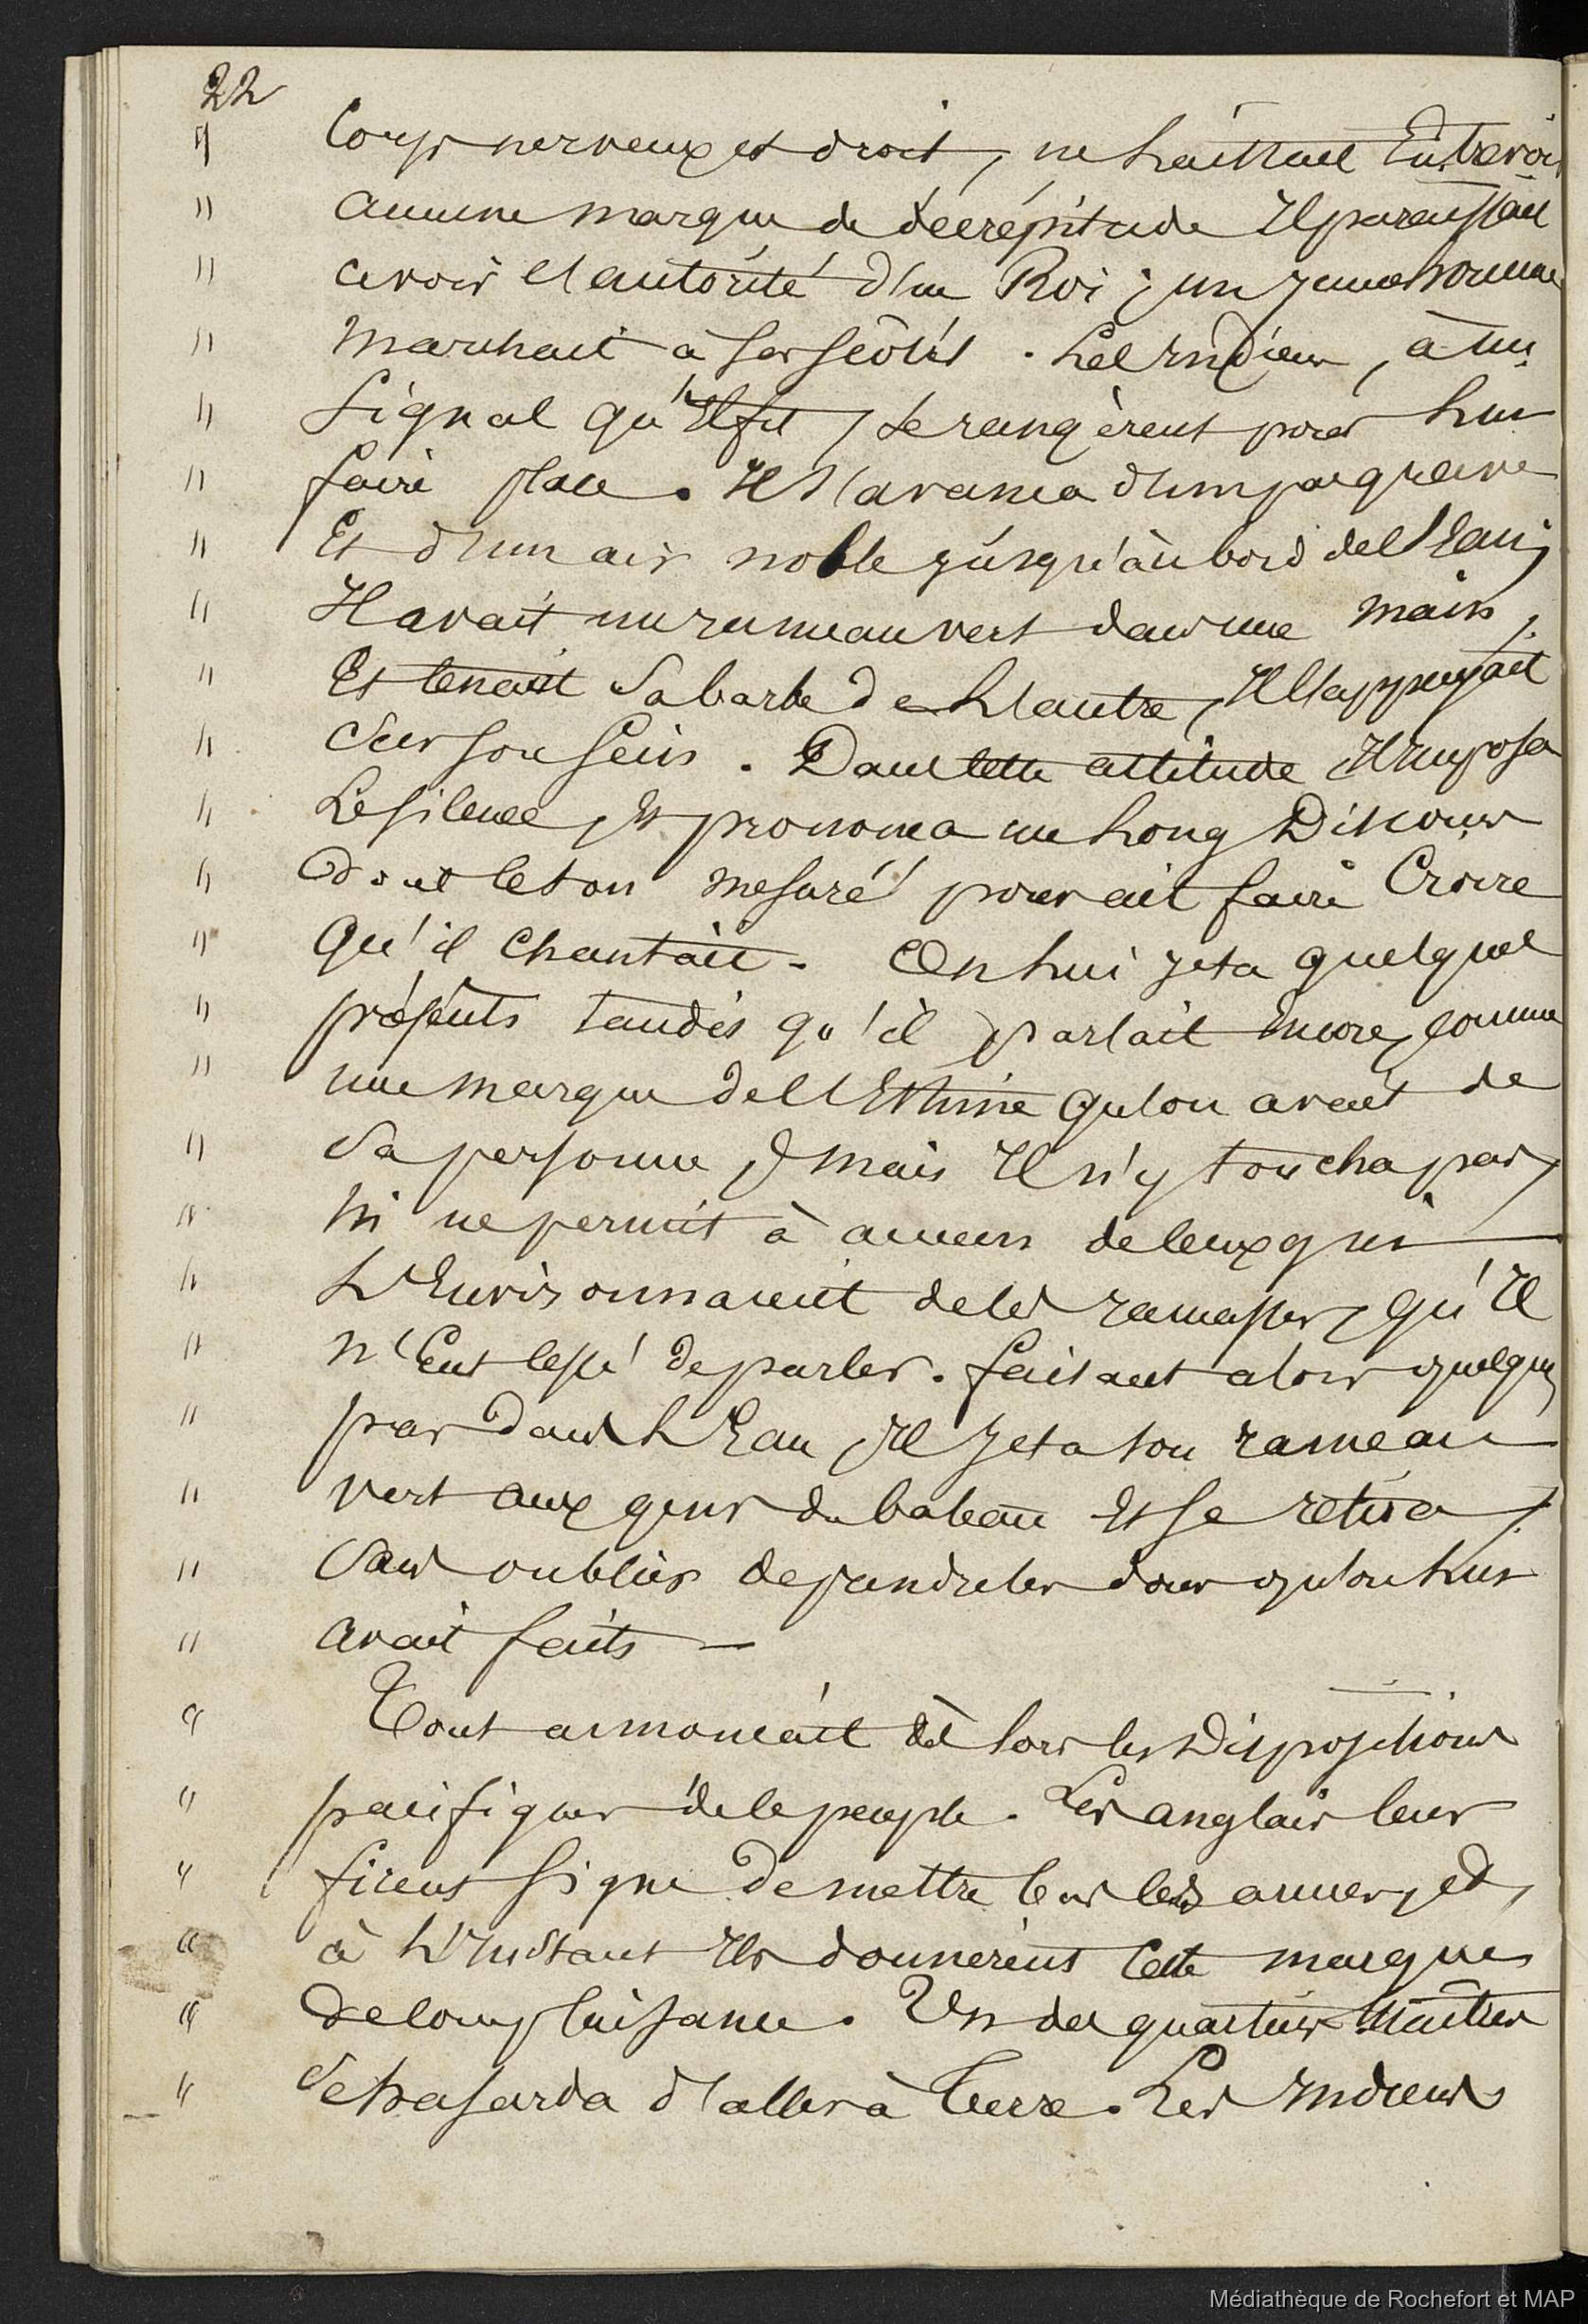 22
" Corps nerveux et droit, ne laissait Entrevoir
" aucune marque de décrépitude Il paraissait
" avoir l'autorité d'un Roi ; un jeune homme
" marchait à ses Côtés . Les Indiens, à un
" Signal qu'Il fit, se rangèrent pour lui
" faire place. Il s'avança d'un pas grave
" Et d'un air noble jusqu'au bord de l'Eau;
" Il avait un rameau vert dans une main,
" Et tenait Sa barbe de L'autre, Il l'appuyait
" Sur son Sein . Dans Cette attitude Il Imposa
" Le silence, Et prononça un Long Discours
" dont le ton mesuré pouvait faire Croire
" Qu'il Chantait. On Lui jeta quelques
" présents tandis qu'il parlait Encore, comme
" une marque de l'Estime Qu'on avait de
" Sa personne, mais Il n'y toucha pas,
" Ni ne permit à aucun de Ceux qui
" L'Environnaient de les ramasser, qu'Il
" n'Eut Cessé de parler. faisant alors quelques
" pas dans L'Eau, Il jeta son rameau
" vert aux gens du bateau Et se retira,
" Sans oublier de prendre les dons qu'on Lui
" avait faits —
" Tout annonçait dès Lors les Dispositions
" pacifiques de Ce peuple . Les anglais leur
" firent Signe de mettre bas les armes, et,
" à L'Instant Ils donnèrent Cette marque
" de Complaisance. Un des quartiers-Maîtres
" Se hasarda d'aller à Terre. Les Indiens
Médiathèque de Rochefort et MAP